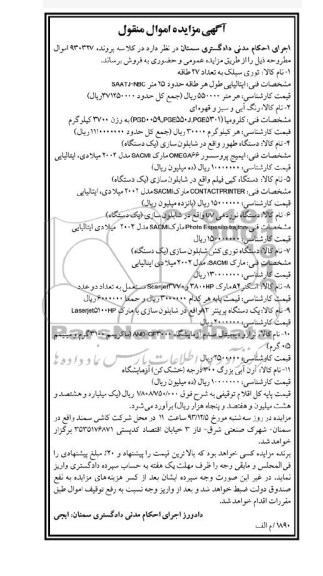 آگهی مزایده اموال منقول
اجرای احکام مدنی دادگستری سمنان در نظر دارد در کلاسه پرونده ۹۳۰۳۲۷ اموال
مطروحه ذیل را از طریق مزایده عمومی و حضوری به فروش برساند.
۱- نام کالا: توری سیلک به تعداد ۲۷ طاقه
مشخصات فنی: ایتالیایی طول هر طاقه حدود ۲۵ متر SAATJ-NBC
قیمت کارشناسی: هر متر ۵۵۰۰۰۰ ریال (جمع کل حدود ۳۷۱۲۵۰۰۰۰ ریال)
۲- نام کالا: رنگ آبی و سبز و قهوه ای
مشخصات فنی: کلرومیا (PGD۰۰۵۹,PGE۵۵۰J,PGE۵۳۰۱) به وزن ۳۷۰۰ کیلوگرم
قیمت کارشناسی: هر کیلوگرم ۳۰۰۰۰ ریال (جمع کل حدود ۱۱۱۰۰۰۰۰۰ ریال)
۴- نام کالا: دستگاه ظهور واقع در شابلون‌سازی (یک دستگاه)
مشخصات فنی: ایمیج پروسسور OMEGA۶۶ مارک SACMI مدل ۲۰۰۲ میلادی، ایتالیایی
قیمت کارشناسی: ۱۰۰۰۰۰۰۰ ریال (ده میلیون ریال)
۵- نام کالا: دستگاه کپی فیلم واقع در شابلون‌سازی (یک دستگاه)
مشخصات فنی: CONTACTPRINTER مارک SACMI مدل ۲۰۰۲ میلادی، ایتالیایی
قیمت کارشناسی: ۱۵۰۰۰۰۰۰ ریال (پانزده میلیون ریال)
۶- نام کالا: دستگاه نوردهی UV واقع در شابلون سازی (یک دستگاه)
مارک SACMI مدل ۲۰۰۲ میلادی ایتالیایی
قیمت کارشناسی: ۱۵۰۰۰۰۰۰ ریال
۷- نام کالا: دستگاه توری کش شابلون سازی (یک دستگاه)
مشخصات فنی: مارک SACMI، مدل ۲۰۰۲ میلادی ایتالیایی
قیمت کارشناسی: ۱۳۰۰۰۰۰۰ ریال
۸- نام کالا: اسکنر A۴ مارک HP ۳۸۰۰ و Scanjet۳۷۷۰ مستعمل به تعداد دو عدد
قیمت کارشناسی: قیمت پایه هر کدام ۳۰۰۰۰۰۰ ریال و جمعا ۶۰۰۰۰۰۰ ریال
۹- نام کالا: یک دستگاه پرینتر A۳ واقع در شابلون سازی با مارک HP Laserjet۵۱۰۰
قیمت کارشناسی: ۲۰۰۰۰۰۰ ریال
۱۰- نام کالا: ترازو دیجیتال سدیم آزمایشگاه AND-GF۳۰۰۰
۰/۵ گرم)
قیمت کارشناسی: ۲۵۰۰۰۰۰ ریال
۱۱- نام کالا: آون آبی بزرگ ۳۰۰ درجه (خشک‌کن) آزمایشگاه
قیمت کارشناسی: ۱۰۰۰۰۰۰۰ ریال (ده میلیون ریال)
قیمت پایه کل اقلام توقیفی به شرح فوق ۱/۸۰۸/۷۵۰/۰۰۰ ریال (یک میلیارد و هشتصد و
هشت میلیون و هفتصد و پنجاه هزار ریال) برآورد می‌شود.
مزایده در روز سه شنبه مورخ ۹۳/۱۲/۵ ساعت ۱۱ در محل شرکت کاشی سمند واقع در
سمنان- شهرک صنعتی شرق- فاز ۳ خیابان اقتصاد کدپستی ۳۵۳۵۱۷۶۸۷۱ برگزار
خواهد شد.
برنده مزایده کسی خواهد بود که بالاترین قیمت را پیشنهاد و ۲۰٪ مبلغ پیشنهادی را
فی‌المجلس و مابقی وجه را ظرف مهلت یک هفته به حساب سپرده دادگستری واریز
نماید. در غیر این صورت وجه سپرده ایشان بعد از کسر هزینه‌های مزایده به نفع
صندوق دولت ضبط خواهد شد و بعد از واریز وجه نسبت به رفع توقیف اموال طبق
مقررات اقدام خواهد شد.
دادورز اجرای احکام مدنی دادگستری سمنان: ایجی
۱۸۹۰/م الف